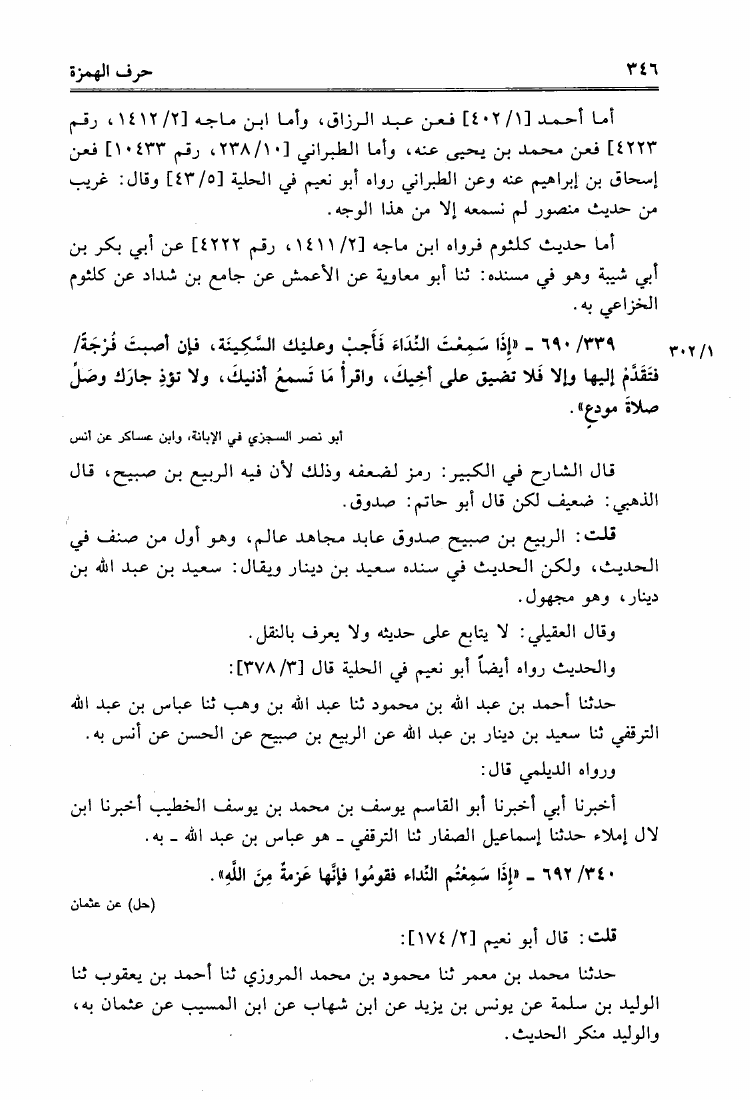 ٣٤٦ حرف الهمزة
أما أحمد [٤٠٢/١] فعن عبد الرزاق، وأما ابن ماجه [١٤١٢/٢، رقم
٤٢٢٣] فعن محمد بن يحيى عنه، وأما الطبراني [٢٣٨/١٠، رقم ١٠٤٣٣] فعن
إسحاق بن إبراهيم عنه وعن الطبراني رواه أبو نعيم في الحلية [٤٣/٥] وقال: غريب
من حديث منصور لم نسمعه إلا من هذا الوجه.
أما حديث كلثوم فرواه ابن ماجه [١٤١١/٢، رقم ٤٢٢٢] عن أبي بكر بن
أبي شيبة وهو في مسنده: ثنا أبو معاوية عن الأعمش عن جامع بن شداد عن كلثوم
الخزاعي به.
٦٩٠/٣٣٩ ـ «إِذَا سَمِعْتَ النِّدَاءَ فَأَجِبْ وعليْك السَّكِينَة، فإن أصبتَ فُرْجَةً/ ٣٠٢/١
فتَقَدَّمْ إليها وإلا فَلا تضيق على أخِيكَ، واقرأْ مَا تَسمعُ أذنيكَ، ولا تؤذِ جارَك وصَلِّ
صلاةَ مودعٍ».
أبو نصر السجزي في الإبانة، وابن عساكر عن أنس
قال الشارح في الكبير: رمز لضعفه وذلك لأن فيه الربيع بن صبيح، قال
الذهبي: ضعيف لكن قال أبو حاتم: صدوق.
قلت: الربيع بن صبيح صدوق عابد مجاهد عالم، وهو أول من صنف في
الحديث، ولكن الحديث في سنده سعيد بن دينار ويقال: سعيد بن عبد الله بن
دينار، وهو مجهول.
وقال العقيلي: لا يتابع على حديثه ولا يعرف بالنقل.
والحديث رواه أيضاً أبو نعيم في الحلية قال [٣٧٨/٣]:
حدثنا أحمد بن عبد الله بن محمود ثنا عبد الله بن وهب ثنا عباس بن عبد الله
الترقفي ثنا سعيد بن دينار بن عبد الله عن الربيع بن صبيح عن الحسن عن أنس به.
ورواه الديلمي قال:
أخبرنا أبي أخبرنا أبو القاسم يوسف بن محمد بن يوسف الخطيب أخبرنا ابن
لال إملاء حدثنا إسماعيل الصفار ثنا الترقفي ـ هو عباس بن عبد الله ـ به.
٦٩٢/٣٤٠ ـ «إِذَا سَمِعْتُم النِّداء فقومُوا فإنَّها عَزمةٌ مِنَ اللَّهِ».
(حل) عن عثمان
قلت: قال أبو نعيم [١٧٤/٢]:
حدثنا محمد بن معمر ثنا محمود بن محمد المروزي ثنا أحمد بن يعقوب ثنا
الوليد بن سلمة عن يونس بن يزيد عن ابن شهاب عن ابن المسيب عن عثمان به،
والوليد منكر الحديث.